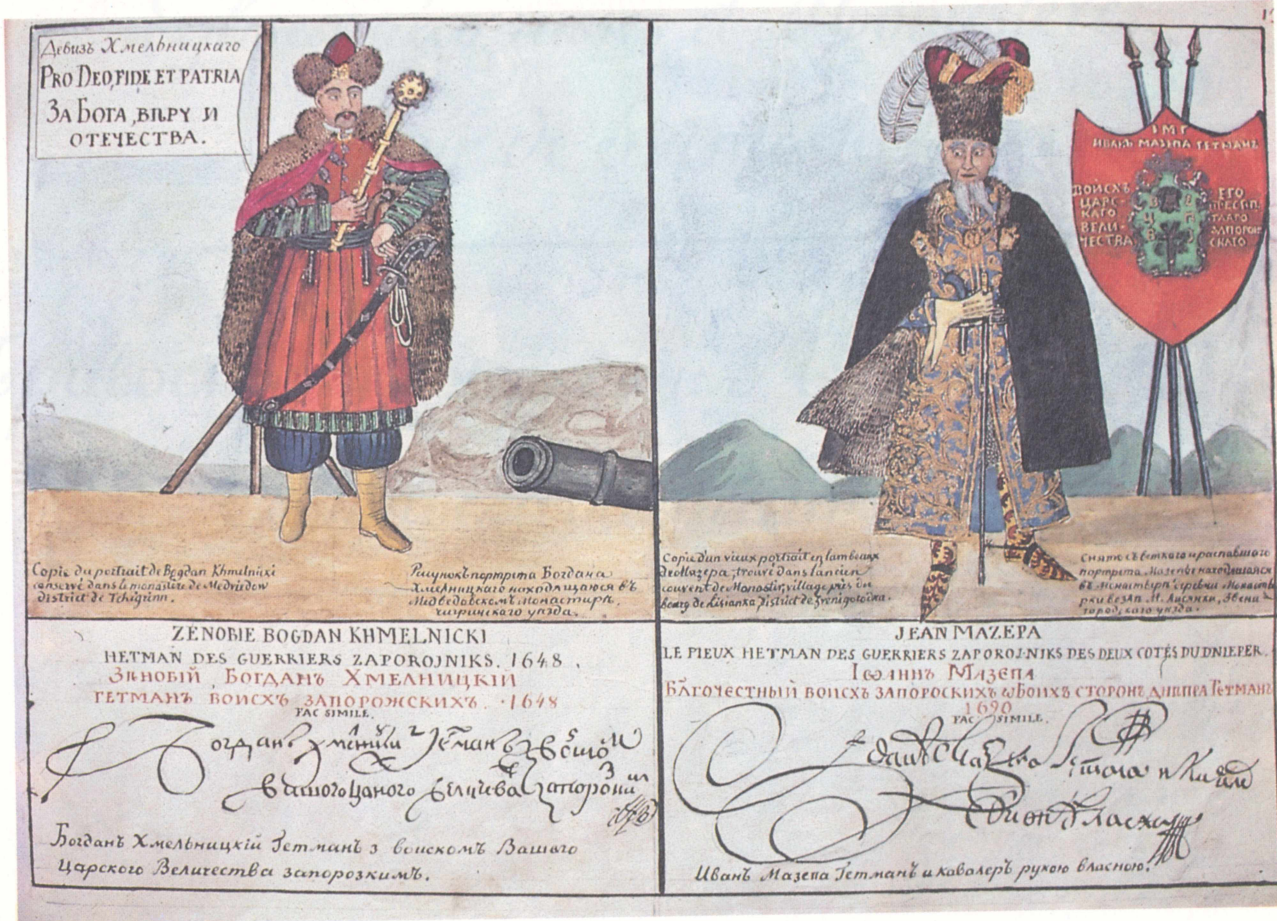 Девизъ Хмельницкаго
PRO DEO, FIDE ET PATRIA
ЗА БОГА, ВѢРУ И
ОТЕЧЕСТВА.
Copie du portrait de Bogdan Khmelnizki
conservé dans le monastère de Medvédow
district de Tchigrinn.
Рисунокъ портрета Богдана
Хмельницкаго находящагося въ
Медведовскомъ монастырѣ,
чигринскаго уѣзда.
ZÉNOBIE BOGDAN KHMELNICKI
HETMAN DES GUERRIERS ZAPOROJNIKS. 1648.
ЗѢНОВІЙ, БОГДАНЪ ХМЕЛНИЦКІЙ
ГЕТМАНЪ ВОИСХЪ ЗАПОРОЖСКИХЪ. 1648
FAC SIMILE.
Богданъ Хмельницкій Гетманъ з воискомъ Вашего
Царского Величества запорозкимъ.
ІМГ
ИВАНЪ МАЗЕПА ГЕТМАНЪ
ВОЙСКЪ ЕГО
ЦАРС-
КАГО
ВЕЛИ-
ЧЕСТВА
Copie d'un vieux portrait en lambeaux
de Mazepa; trouvé dans l'ancien
couvent de Monastir, village près du
bourg de Lisianka district de Zvenigorodka.
Снятъ съ ветхого и распавшаго
портрета Мазепы находившася
въ монастырѣ
JEAN MAZEPA
LE PIEUX HETMAN DES GUERRIERS ZAPOROJNIKS DES DEUX COTÉS DU DNIEPER.
ІОАННЪ МАЗЕПА
БЛАГОЧЕСТНЫЙ ВОИСХЪ ЗАПОРОСКИХЪ ѡБОИХЪ СТОРОНЪ ДНѢПРА ГЕТМАНЪ
1690
FAC SIMILE.
Иванъ Мазепа Гетманъ и кавалеръ рукою власною.